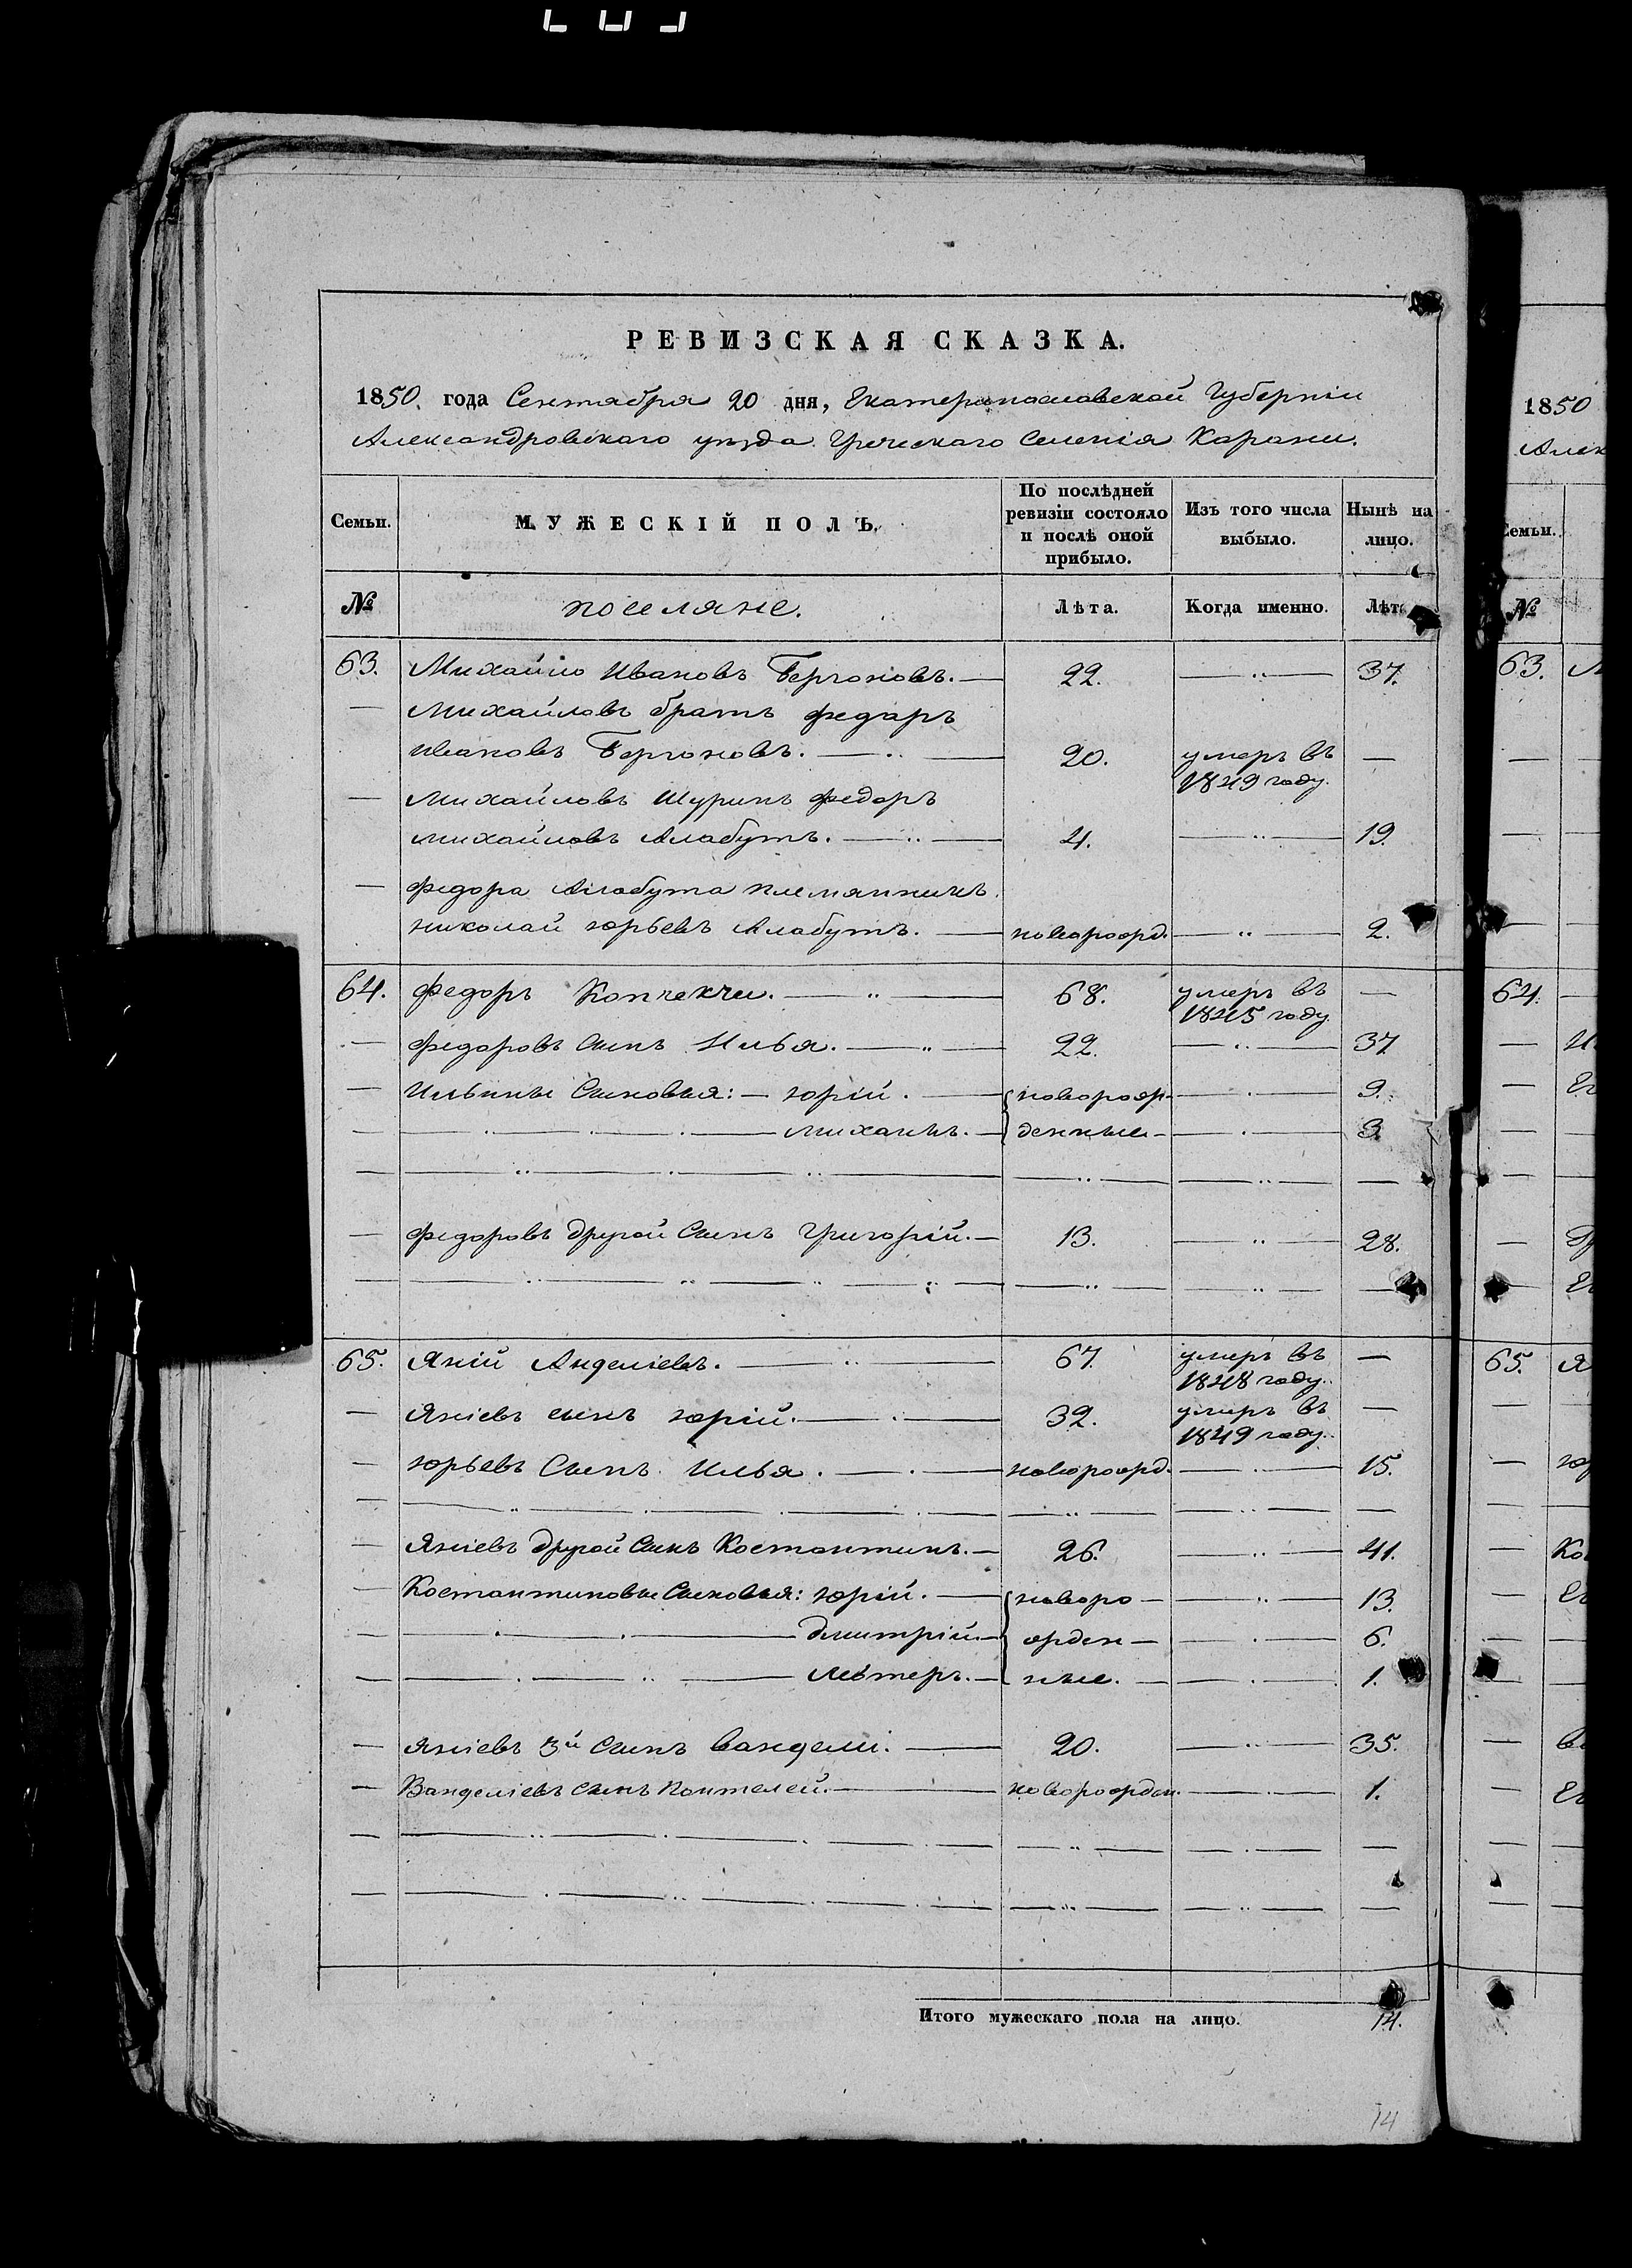 РЕВИЗСКАЯ СКАЗКА.
1850. года Сентября 20 дня, Екатеринославской Губернiи
Александровскаго уѣзда Греческаго Селенiя Карани.
Семьи. МУЖЕСКIЙ ПОЛЪ. По послѣдней ревизiи состояло и послѣ оной прибыло. Изъ того числа выбыло. Нынѣ на лицо.
№ поселяне. Лѣта. Когда именно. Лѣта
63. Михайло Ивановъ 22. — 37.
— Михайловъ братъ Федаръ
Ивановъ 20. умеръ въ 1849 году. —
— Михайловъ Шуринъ Федоръ
Михайловъ Алабутъ. 4. — 19.
— Федора Алабута племянникъ
Николай Юрьевъ Алабутъ. новорожд. — 2.
64. Федоръ Копчекчи. 68. умеръ въ 1845 году —
— Федоровъ Сынъ Илья. 22. — 37
— Ильины Сыновья: — Юрiй. новорож- — 9.
— Михаилъ. денные — 3.
— Федоровъ другой Сынъ Григорiй. — 13. — 28.
65. Янiй Анделiевъ. 67. умеръ въ 1848 году. —
— Янiевъ сынъ Юрiй. 32. умеръ въ 1849 году. —
— Юрьевъ Сынъ Илья. новорожд. — 15.
— Янiевъ другой Сынъ Костантинъ. — 26. — 41.
— Костантиновы Сыновья: Юрiй. — новоро — 13.
— Дмитрiй. — жден — 6.
— — ные. — 1.
— Янiевъ 3й Сынъ Вандели. 20. — 35.
— Ванделiевъ сынъ Пантелей. новорожден. — 1.
Итого мужескаго пола на лицо. 14.
14
1850
Алек
Семьи.
№
63. М
64.
65. Я